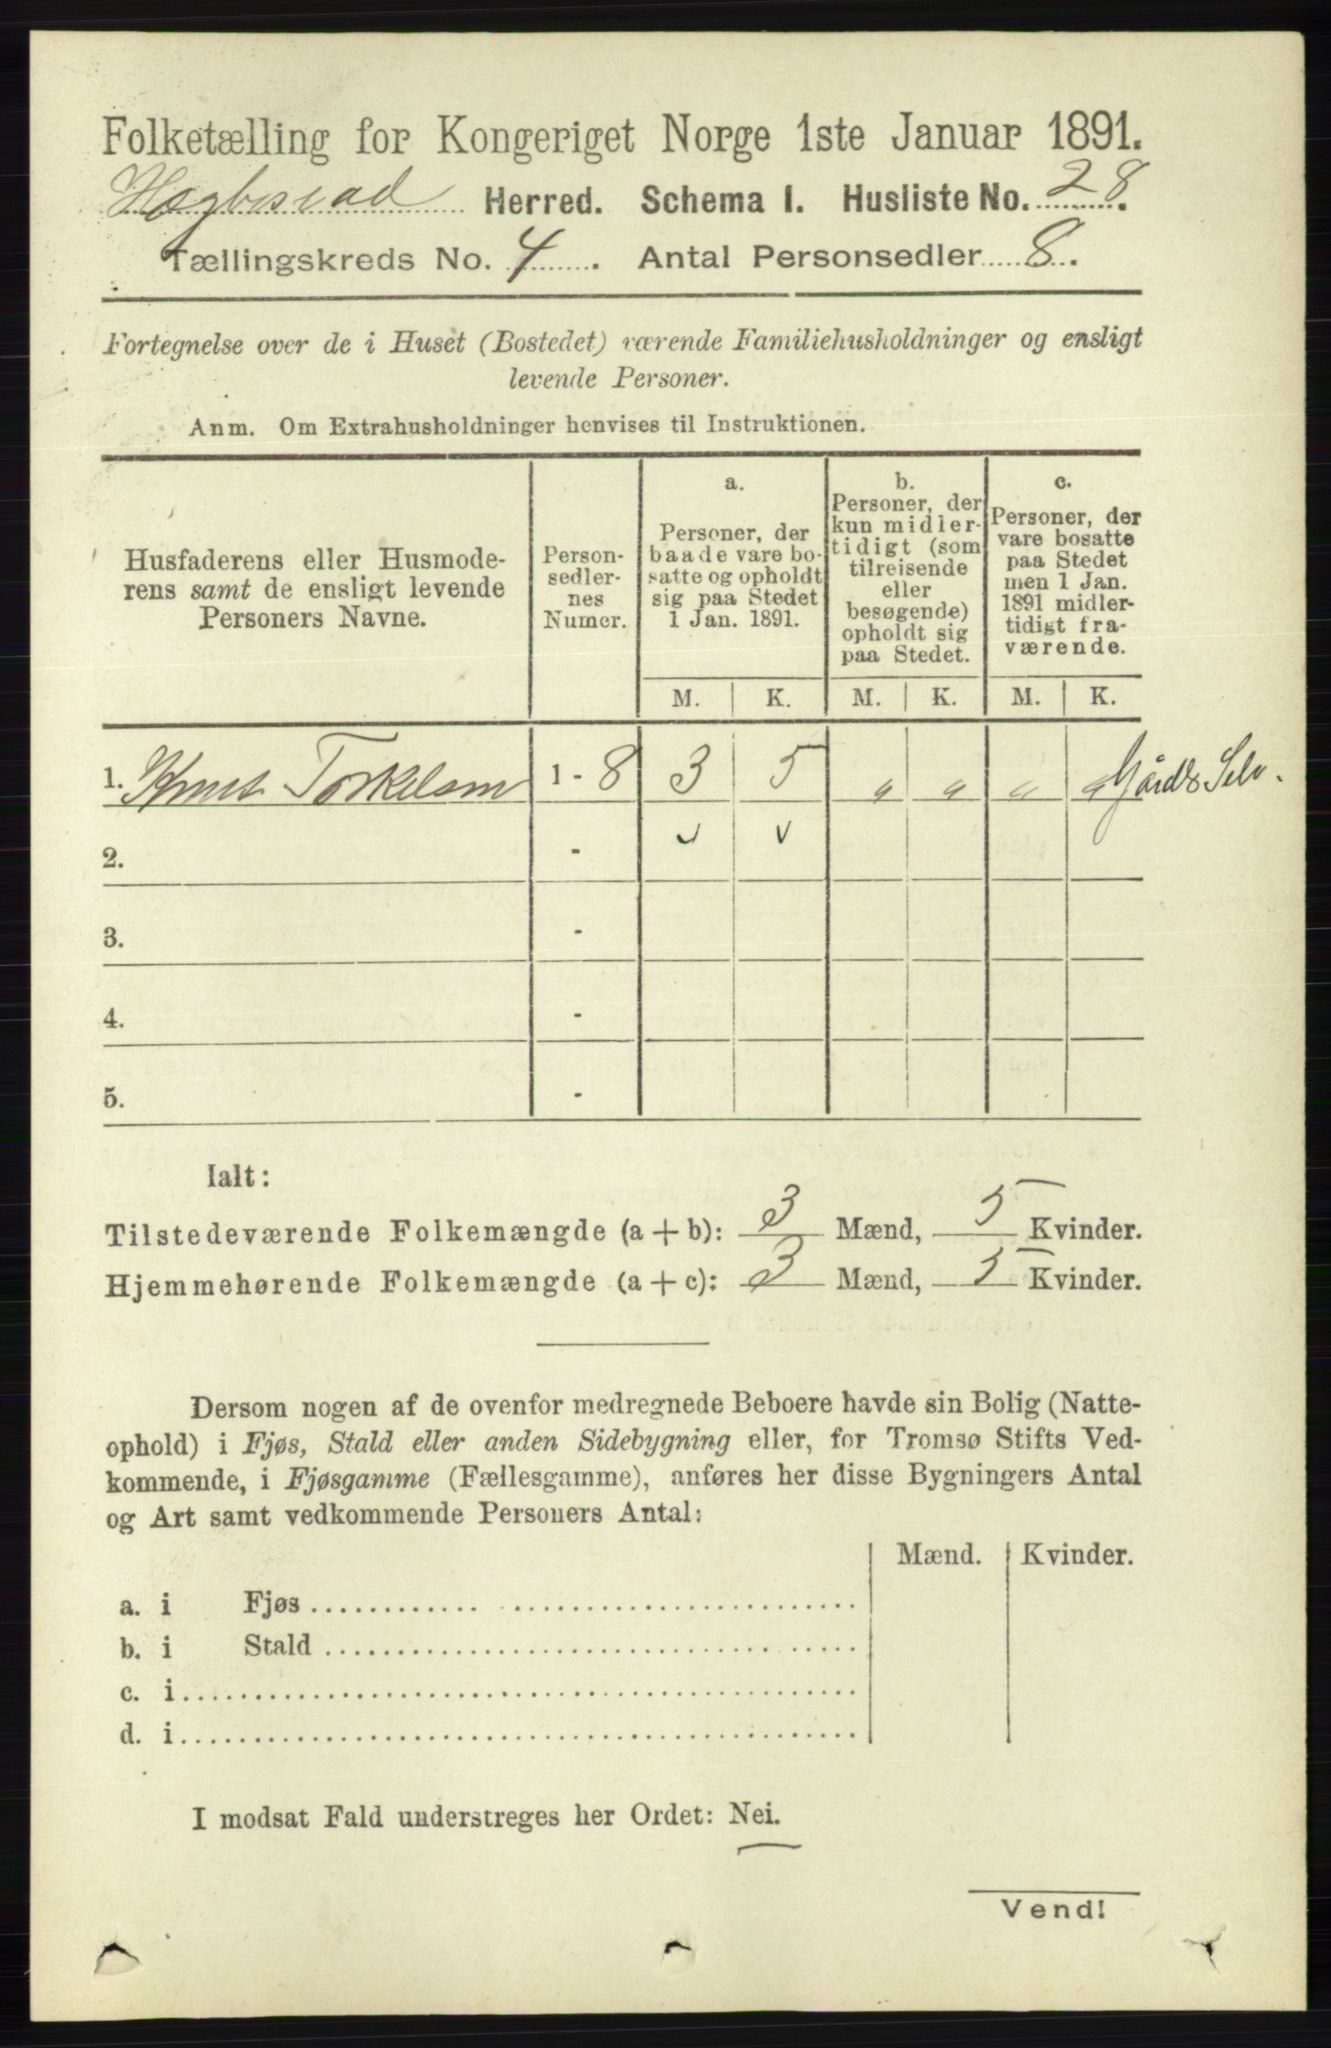 Folketælling for Kongeriget Norge 1ste Januar 1891.
Hægbostad Herred. Schema I. Husliste No. 28.
Tællingskreds No. 4. Antal Personsedler 8.
Fortegnelse over de i Huset (Bostedet) værende Familiehusholdninger og ensligt
levende Personer.
Anm. Om Extrahusholdninger henvises til Instruktionen.
Husfaderens eller Husmode-
rens samt de ensligt levende
Personers Navne.
Person-
sedler-
nes
Numer.
a.
Personer, der
baade vare bo-
satte og opholdt
sig paa Stedet
1 Jan. 1891.
b.
Personer, der
kun midler-
tidigt (som
tilreisende
eller
besøgende)
opholdt sig
paa Stedet.
c.
Personer, der
vare bosatte
paa Stedet
men 1 Jan.
1891 midler-
tidigt fra-
værende.
M. K. M. K. M. K.
1. Knut Torkelsen 1 - 8 3 5 " " " " Gårdb Selv.
2. -
3. -
4. -
5. -
Ialt:
Tilstedeværende Folkemængde (a + b): 3 Mænd, 5 Kvinder.
Hjemmehørende Folkemængde (a + c): 3 Mænd, 5 Kvinder.
Dersom nogen af de ovenfor medregnede Beboere havde sin Bolig (Natte-
ophold) i Fjøs, Stald eller anden Sidebygning eller, for Tromsø Stifts Ved-
kommende, i Fjøsgamme (Fællesgamme), anføres her disse Bygningers Antal
og Art samt vedkommende Personers Antal:
Mænd. Kvinder.
a. i Fjøs
b. i Stald
c. i
d. i
I modsat Fald understreges her Ordet: Nei.
Vend!